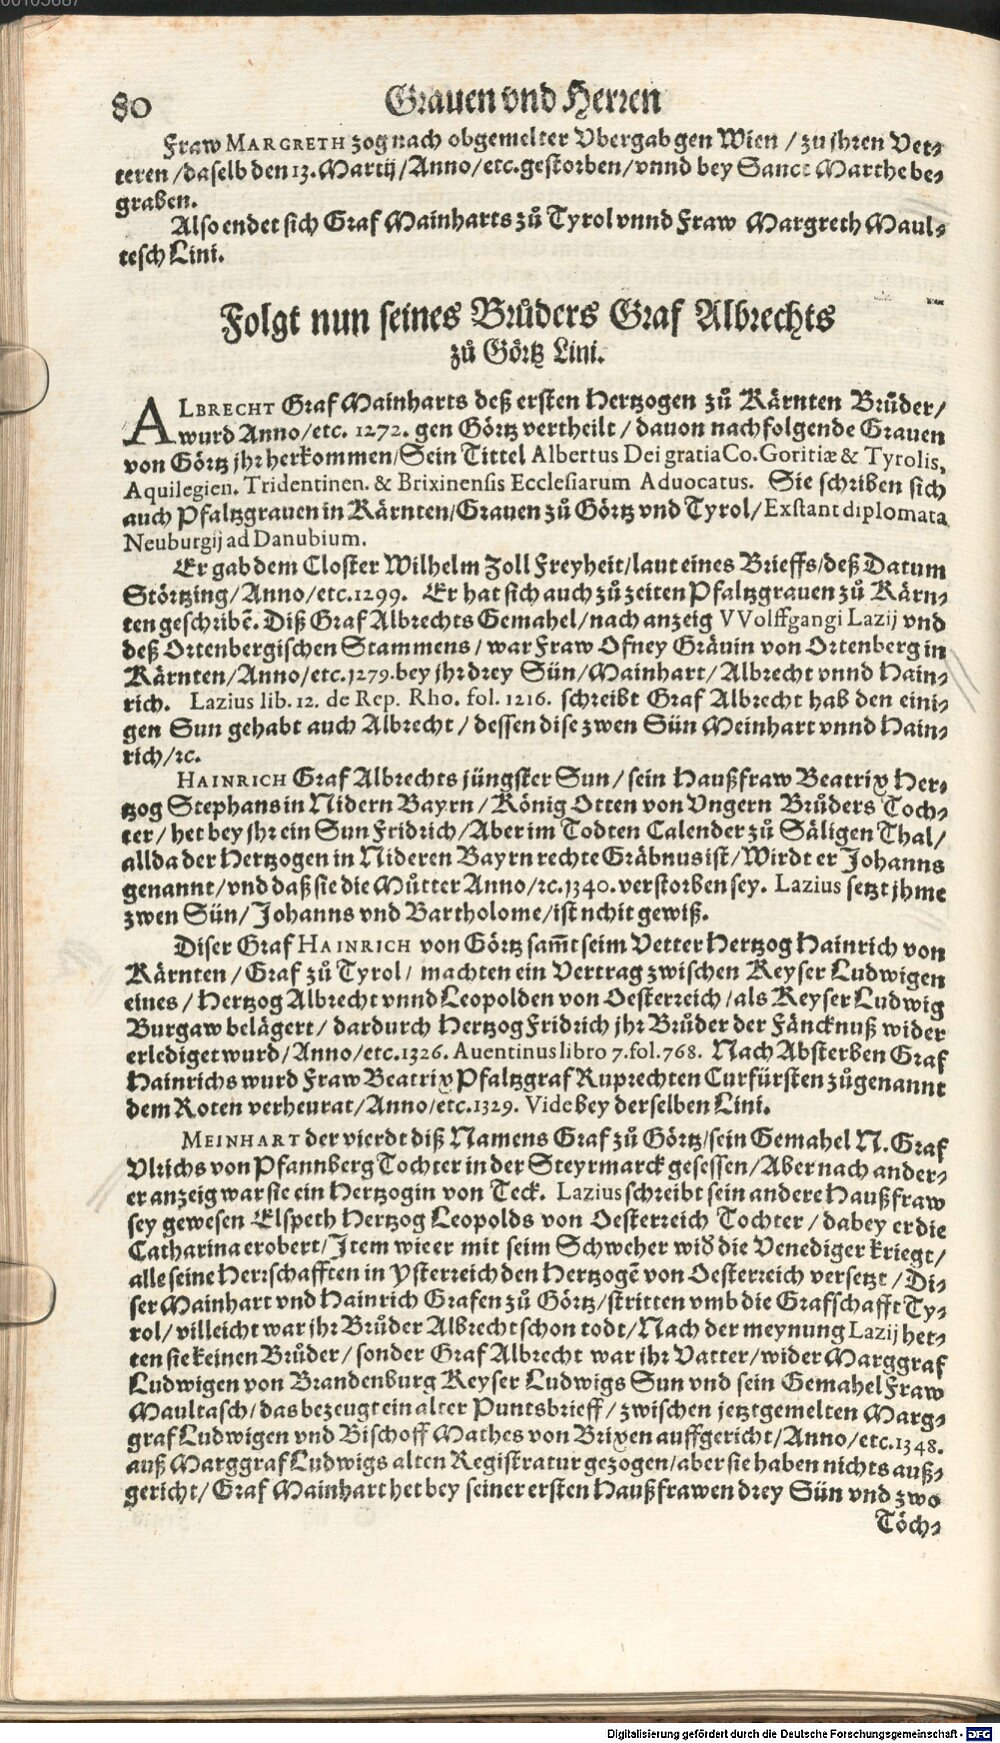 80 Grauen vnd Herren
Fraw MARGRETH zog nach obgemelter Vbergab gen Wien / zu jhren Vet⸗
teren / daselb den 13. Martij / Anno / etc. gestorben / vnnd bey Sanct Marthe be⸗
graben.
Also endet sich Graf Mainharts zů Tyrol vnnd Fraw Margreth Maul⸗
tesch Lini.
Folgt nun seines Brůders Graf Albrechts
zů Görtz Lini.
ALBRECHT Graf Mainharts deß ersten Hertzogen zů Kärnten Brůder /
wurd Anno / etc. 1272. gen Görtz vertheilt / dauon nachfolgende Grauen
von Görtz jhr herkommen / Sein Tittel Albertus Dei gratia Co. Goritiæ & Tyrolis,
Aquilegien. Tridentinen. & Brixinensis Ecclesiarum Aduocatus. Sie schriben sich
auch Pfaltzgrauen in Kärnten / Grauen zů Görtz vnd Tyrol / Exstant diplomata
Neuburgij ad Danubium.
Er gab dem Closter Wilhelm Zoll Freyheit / laut eines Brieffs / deß Datum
Störtzing / Anno / etc. 1299. Er hat sich auch zů zeiten Pfaltzgrauen zů Kärn⸗
ten geschribẽ. Diß Graf Albrechts Gemahel / nach anzeig VVolffgangi Lazij vnd
deß Ortenbergischen Stammens / war Fraw Ofney Grävin von Ortenberg in
Kärnten / Anno / etc. 1279. bey jhr drey Sün / Mainhart / Albrecht vnnd Hain⸗
rich. Lazius lib. 12. de Rep. Rho. fol. 1216. schreibt Graf Albrecht hab den eini⸗
gen Sun gehabt auch Albrecht / dessen dise zwen Sün Meinhart vnnd Hain⸗
rich / ꝛc.
HAINRICH Graf Albrechts jüngster Sun / sein Haußfraw Beatrix Her⸗
tzog Stephans in Nidern Bayrn / König Otten von Vngern Brůders Toch⸗
ter / het bey jhr ein Sun Fridrich / Aber im Todten Calender zů Säligen Thal /
allda der Hertzogen in Nideren Bayrn rechte Gräbnus ist / Wirdt er Johanns
genannt / vnd daß sie die Můtter Anno / ꝛc. 1340. verstorben sey. Lazius setzt jhme
zwen Sün / Johanns vnd Bartholome / ist nchit gewiß.
Diser Graf HAINRICH von Görtz sam̃t seim Vetter Hertzog Hainrich von
Kärnten / Graf zů Tyrol / machten ein Vertrag zwischen Keyser Ludwigen
eines / Hertzog Albrecht vnnd Leopolden von Oesterreich / als Keyser Ludwig
Burgaw belägert / dardurch Hertzog Fridrich jhr Brůder der Fäncknuß wider
erlediget wurd / Anno / etc. 1326. Auentinus libro 7. fol. 768. Nach Absterben Graf
Hainrichs wurd Fraw Beatrix Pfaltzgraf Ruprechten Curfürsten zůgenannt
dem Roten verheurat / Anno / etc. 1329. Vide bey derselben Lini.
MEINHART der vierdt diß Namens Graf zů Görtz / sein Gemahel N. Graf
Vlrichs von Pfannberg Tochter in der Steyrmarck gesessen / Aber nach ander⸗
er anzeig war sie ein Hertzogin von Teck. Lazius schreibt sein andere Haußfraw
sey gewesen Elspeth Hertzog Leopolds von Oesterreich Tochter / dabey er die
Catharina erobert / Item wie er mit seim Schweher wid̃ die Venediger kriegt /
alle seine Herrschafften in Ysterreich den Hertzogẽ von Oesterreich versetzt / Di⸗
ser Mainhart vnd Hainrich Grafen zů Görtz / stritten vmb die Grafschafft Ty⸗
rol / villeicht war jhr Brůder Albrecht schon todt / Nach der meynung Lazij het⸗
ten sie keinen Brůder / sonder Graf Albrecht war jhr Vatter / wider Marggraf
Ludwigen von Brandenburg Keyser Ludwigs Sun vnd sein Gemahel Fraw
Maultasch / das bezeugt ein alter Puntsbrieff / zwischen jetztgemelten Marg⸗
graf Ludwigen vnd Bischoff Mathes von Brixen auffgericht / Anno / etc. 1348.
auß Marggraf Ludwigs alten Registratur gezogen / aber sie haben nichts auß⸗
gericht / Graf Mainhart het bey seiner ersten Haußfrawen drey Sün vnd zwo
Töch⸗
Digitalisierung gefördert durch die Deutsche Forschungsgemeinschaft - DFG